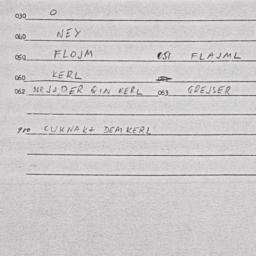 030 O
040 NEY
050 FLOJM 051 FLAJML
060 KERL
062 DER JU, DER GIN KERL 063 GREJSER
GUKNAK+ DEM KERL